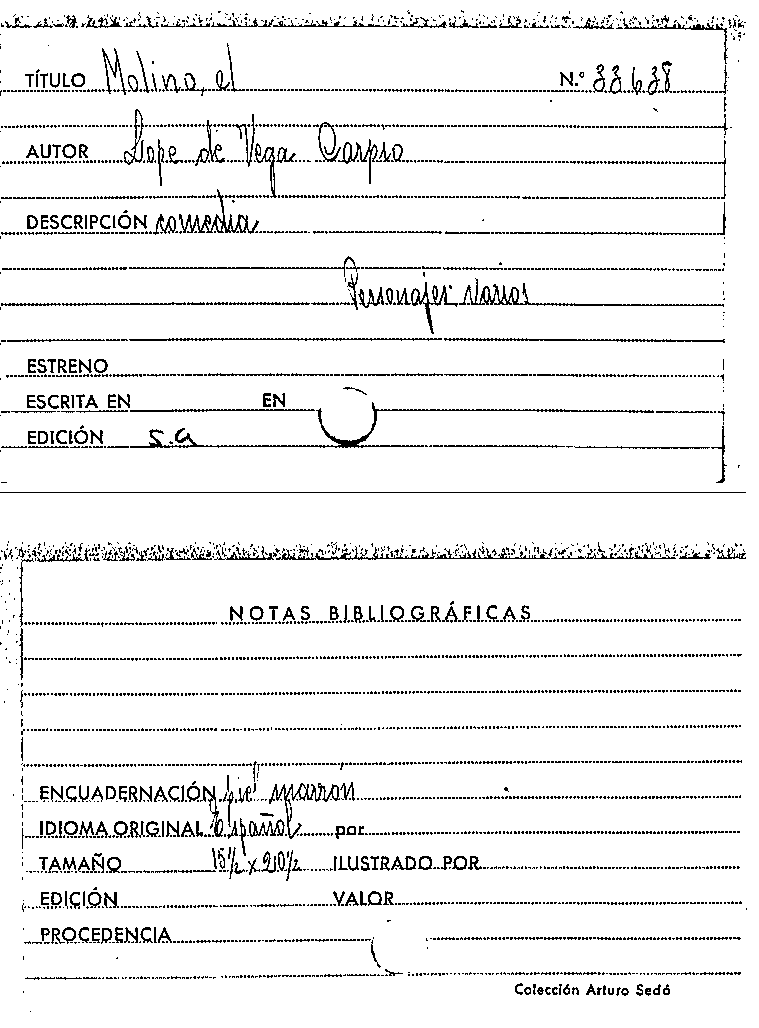 TÍTULO Molino, el N.º 33638
AUTOR Lope de Vega Carpio
DESCRIPCIÓN comedia
Personajes varios
ESTRENO
ESCRITA EN EN
EDICIÓN s.a
NOTAS BIBLIOGRÁFICAS
ENCUADERNACIÓN piel marrón
IDIOMA ORIGINAL Español por
TAMAÑO 15½ x 20½ ILUSTRADO POR
EDICIÓN VALOR
PROCEDENCIA
Colección Arturo Sedó